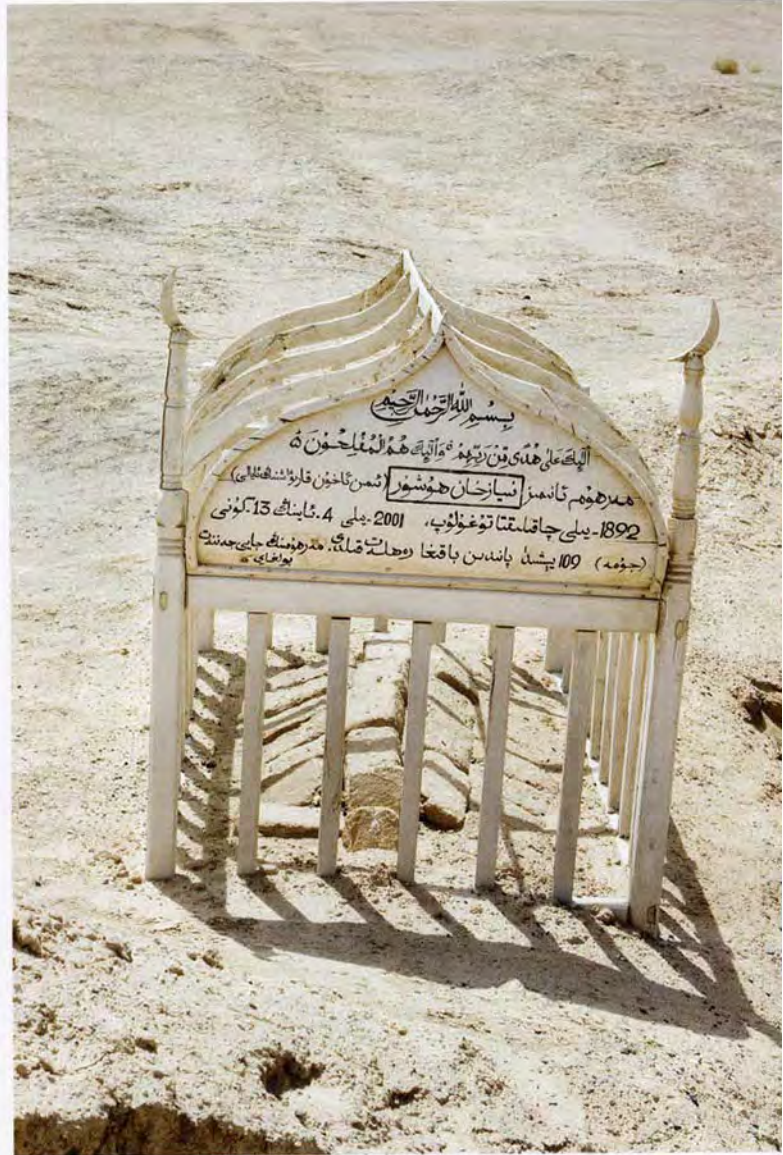 بِسْمِ اللهِ الرَّحْمٰنِ الرَّحِيْمِ
اُولٰٓئِكَ عَلٰى هُدًى مِّنْ رَّبِّهِمْ وَاُولٰٓئِكَ هُمُ الْمُفْلِحُوْنَ ۵
مەرھۇم ئانىمىز نىيازخان ھوشۇر (ئىمىن ئاخۇن قارۇشنىڭ ئايالى)
1892-يىلى چاقىلىقتا تۇغۇلۇپ، 2001-يىلى 4-ئاينىڭ 13-كۈنى
(جۈمە) 109 يېشىدا پانىدىن باقىغا رەھلەت قىلدى. مەرھۇمنىڭ جايى جەننەتتە
بولغاي